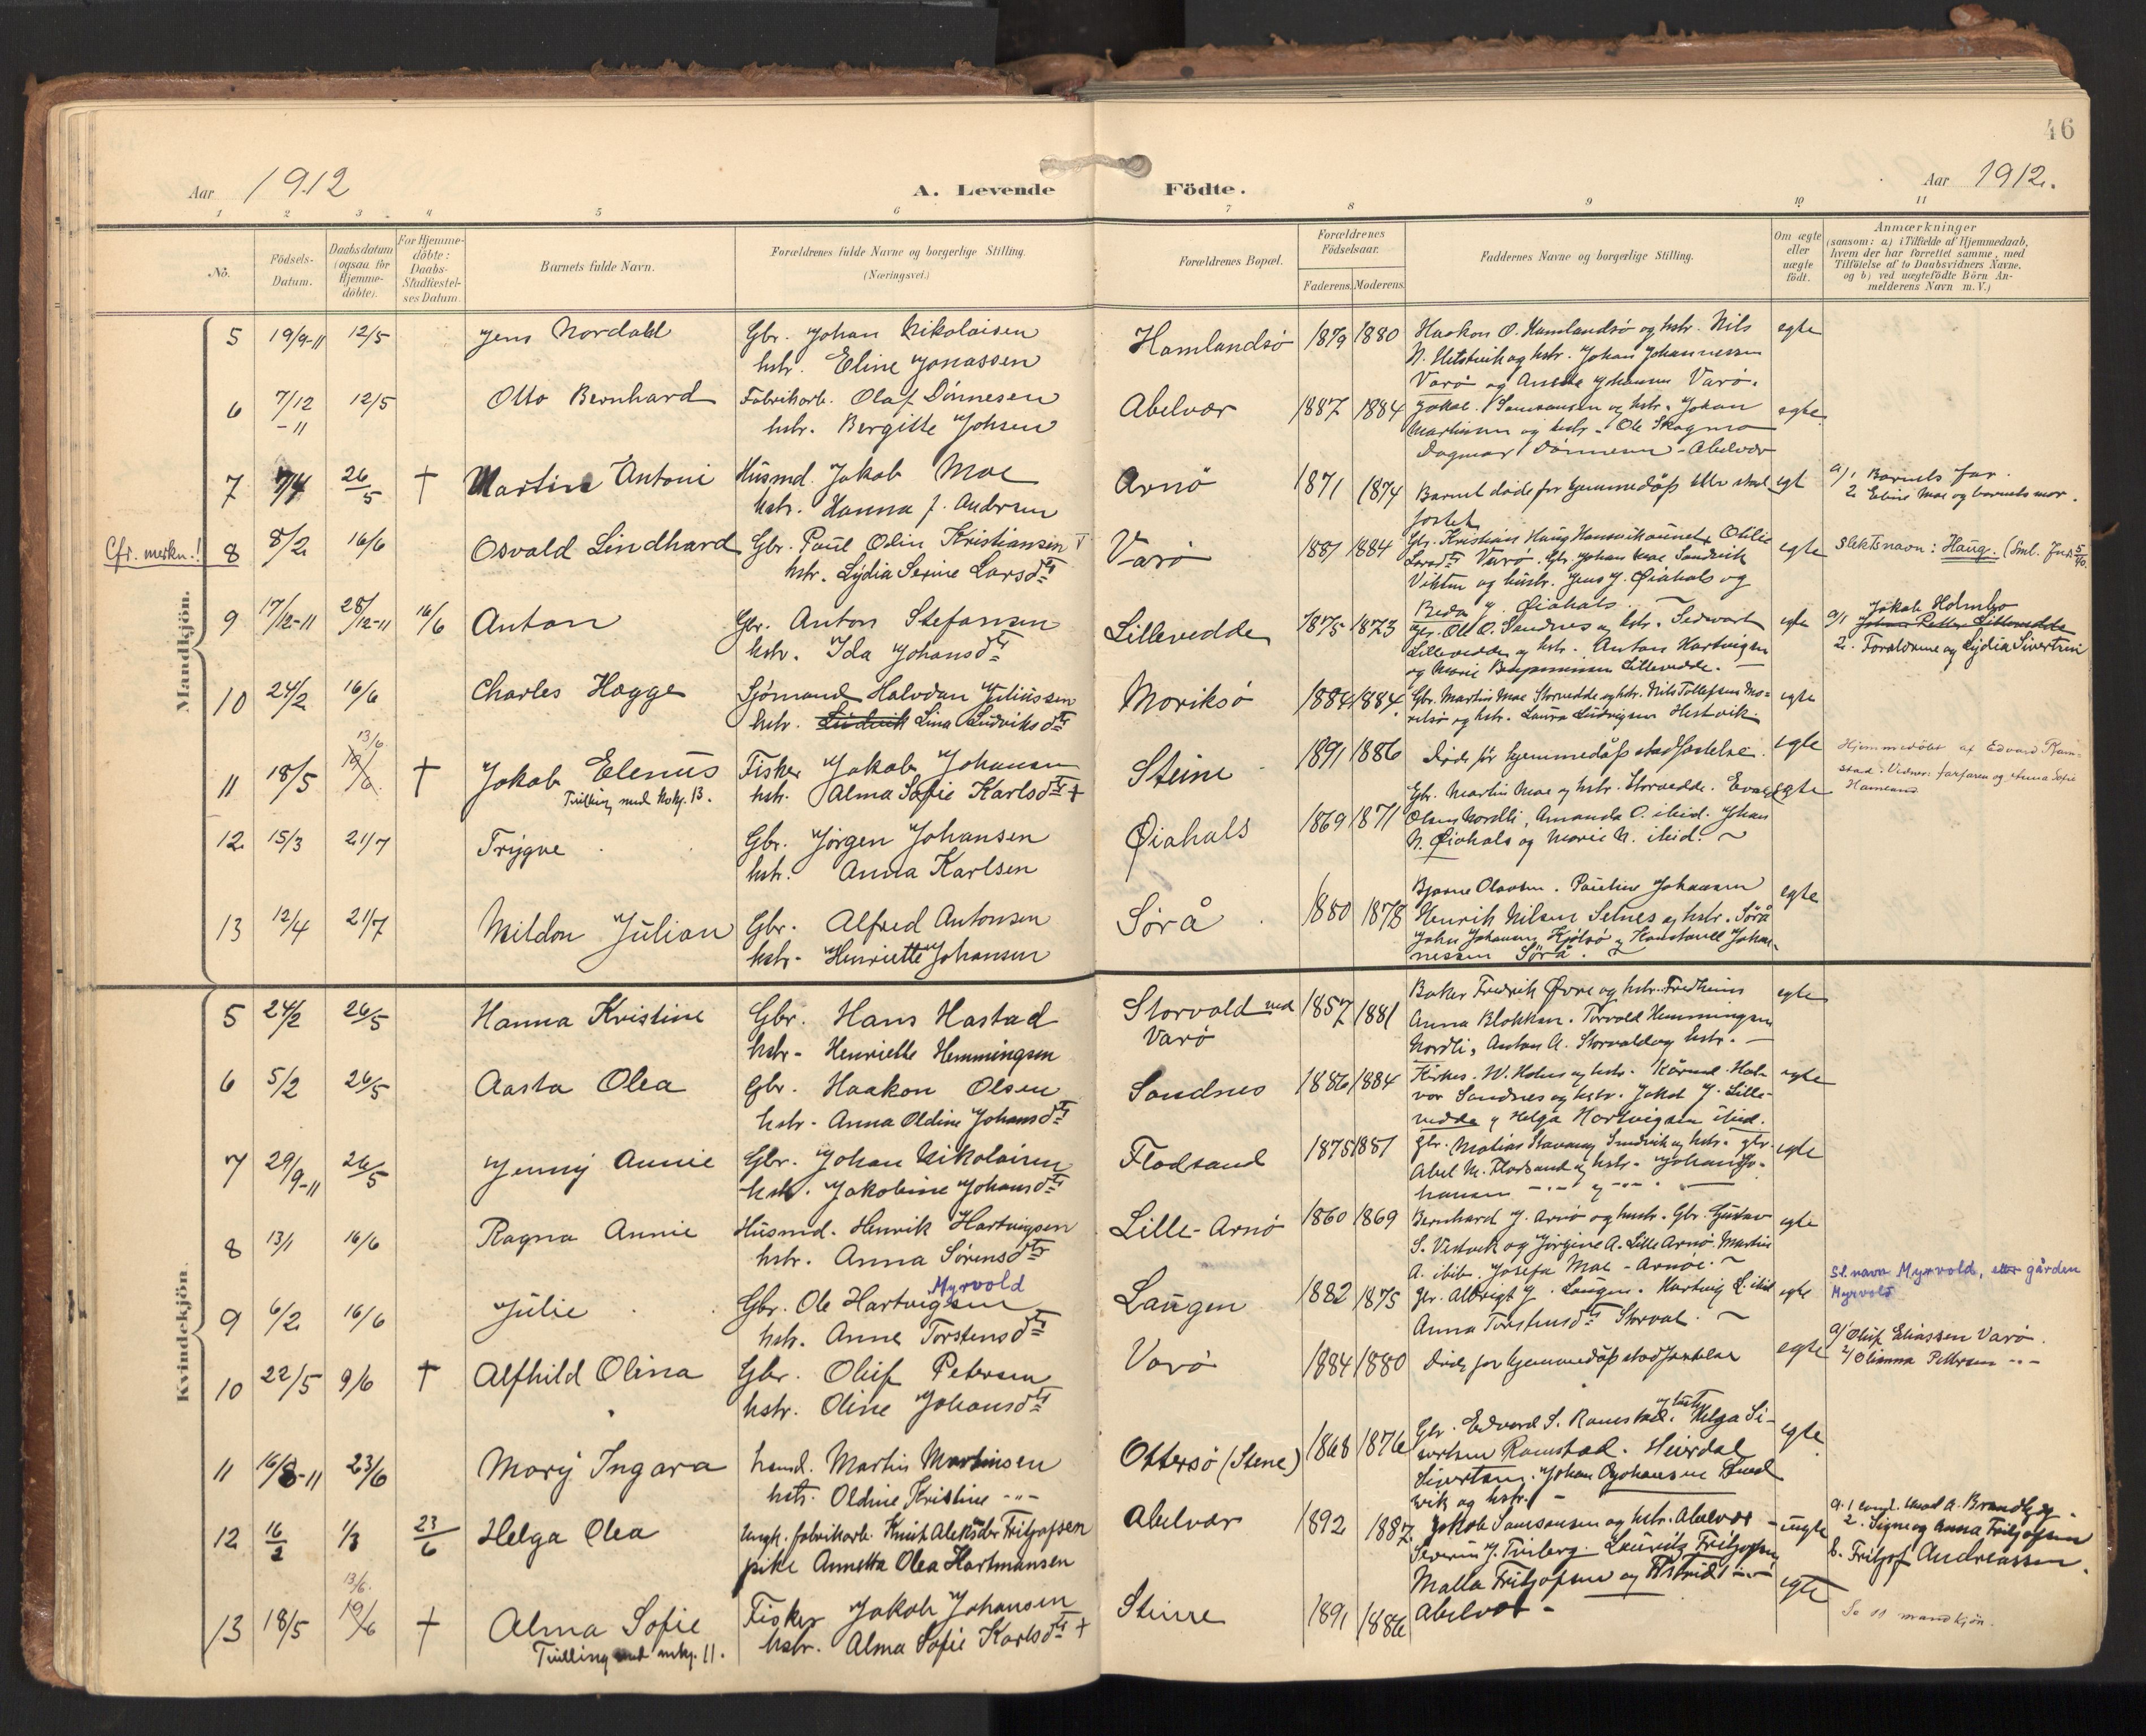 46
Aar 1912
A. Levende Fødte.
Aar 1912.
1 2 3 4 5 6 7 8 9 10 11
No.
Fødsels-
Datum.
Daabsdatum
(ogsaa for
Hjemme-
døbte).
For Hjemme-
døbte:
Daabs-
Stadfæstel-
ses Datum.
Barnets fulde Navn.
Forældrenes fulde Navne og borgerlige Stilling.
(Næringsvei.)
Forældrenes Bopæl.
Forældrenes
Fødselsaar.
Faderens. Moderens.
Faddernes Navne og borgerlige Stilling.
Om ægte
eller
uægte
født.
Anmærkninger
(saasom: a) i Tilfælde af Hjemmedaab,
hvem der har forrettet samme, med
Tilføielse af to Daabsvidners Navne,
og b) ved uægtefødte Børn An-
melderens Navn m. V.)
Mandkjøn.
5 19/9-11 12/5 Jens Nordahl Gbr. Johan Nikolaisen Hamlandsø 1879 1880 Haakon O. Hamlandsø og hstr. Nils egte
hstr. Eline Jonassen N. Hestvik og hstr. Johan Johannessen
Varø og Johansen Varø.
6 7/12 -11 12/5 Otto Bernhard Fabrikarb. Olaf Dønnesen Abelvær 1887 1884 Jakob Samsonsen og hstr. Johan egte
hstr. Bergitte Johsen Martinsen og hstr. Ole Skagmo
Dagmar Dønnesen - Abelvær
7 7/4 26/5 † Martin Antoni Husmd. Jakob Moe Arnø 1871 1874 Barnet døde før hjemmedåps blev stad egt a/1 Barnets far.
hstr. Hanna f. Andersen festet 2. Moe og barnets mor.
Cfr. merkn.! 8 8/2 16/6 Osvald Lindhard Gbr. Paul Odin Kristiansen Varø 1881 1884 Gbr. Kristian Haug Otilie egte Slektsnavn: Haug. (Sml. 5/40.
hstr. Lydia Serine Larsdtr Larsdtr Varø. Gbr. Johan Moe Sandvik
og hustr. Jens J. Øiahals og
9 17/12-11 28/12-11 16/6 Anton Gbr. Anton Stefansen Lillevedde 1875 1873 Øiahals egte a/1 Jakob Holmbo
hstr. Ida Johansdtr Gbr. Ole O. Sandnes og hstr. 2. Forældrene og Lydia Sivertsen
Lillevedde og hstr. Anton Hartvigsen
og Marie Benjaminsen Lillevedde.
10 24/2 16/6 Charles Hagge Sjømand Halvdan Juliussen Moriksø 1884 1884 Gbr. Martin Moe Storvedde og hstr. Nils Tollefsen Mo- egte
hstr. Lina Ludviksdtr og hstr. Laura Ludvigsen Hestvik
11 18/5 13/6 19/6 † Jakob Elenus Fisker Jakob Johansen Steine 1891 1886 Døde før hjemmedåps stadfæstelse. egte Hjemmedøbt af Edvard Ram-
Tvilling med kvkj. 13. hstr. Alma Sofie Karlsdtr † stad. Vidner: farfaren og Anna Sofie
Hamland
12 15/3 21/7 Trygve Gbr. Jørgen Johansen Øiahals 1869 1871 Gbr. Martin Moe og hstr. Storvedde. egte
hstr. Anna Karlsen Olsen Nordli, Amanda O. ibid. Johan
N. Øiahals og Marie N. ibid.
13 12/4 21/7 Meldon Julian Gbr. Alfred Antonsen Sørå 1880 1878 Bjarne Olavsen. Pauline Johansen egte
hstr. Henriette Johansen Henrik Nilsen Setnes og hstr. Sørå
John Johansen Kjølsø og Johan-
nessen Sørå.
Kvindekjøn.
5 24/2 26/5 Hanna Kristine Gbr. Hans Hastad Storvold ved 1857 1881 Baker Fredrik Øvre og hstr. Fredheim egte
hstr. Henriette Hemmingsen Varø Anna Blokken. Torvald Hemmingsen
Nordli, Anton A. Storvold og hstr.
6 5/2 26/5 Aasta Olea Gbr. Haakon Olsen Sandnes 1886 1884 W. Holm og hstr. Hal- egte
hstr. Anna Oldine Johansdtr vor Sandnes og hstr. Jakob J. Lille-
vedde og Helga Hartvigsen ibid.
7 29/9-11 26/5 Jenny Annie Gbr. Johan Nikolaisen Flodsand 1875 1881 Gbr. Matias Stavang Sandvik og hstr. gbr. egte
hstr. Jakobine Johansdtr Abel M. Flodsand og hstr. Johan Jo-
hansen
8 13/1 16/6 Ragna Annie Husmd. Henrik Hartvigsen Lille-Arnø 1860 1869 Bernhard J. Arnø og hustr. Gbr. Gustav egte
hstr. Anna Sørensdtr S. Vestvik og Jørgine A. Lille Arnø. Martin
A. ibid. Josefa Moe - Arnø.
9 6/2 16/6 Julie Gbr. Ole Hartvigsen Myrvold Laugen 1882 1875 Gbr. Albrigt J. Laugen. Hartvig L. ibid egte Sl.navn Myrvold, etter gården
hstr. Anne Torstensdtr Anna Torstensdtr Storval. Myrvold
10 22/5 9/6 † Alfhild Olina Gbr. Oluf Petersen Varø 1884 1880 Døde før hjemmedåps stadfæstelse egte a/1 Oluf Eliassen Varø.
hstr. Oline Johansdtr 2/ Olianna Pettersen -"-
11 16/8-11 23/6 Mary Ingara Martin Martinsen Ottersø (Stene) 1868 1876 Gbr. Edvard S. Ramstad og hustr. Helga Si- egte
hstr. Oldine Kristine -"- vertsen Ramstad. Heirdal
Sivertsen. Johan Johansen
vik og hstr.
12 16/2 1/3 23/6 Helga Olea Ungk. fabrikarb. Knut Aleksander Fritjofsen Abelvær 1892 1887 Jakob Samsonsen og hstr. Abelvær - uegte a. 1 A. Brandtzæg.
pike Annetta Olea Hartmansen Severin J. Lauritz Fritjofsen 2. Signe og Anna Fritjofsen
Malla Fritjofsen og Astrid -"- b. Fritjof Andreassen.
Abelvær -
13 18/5 13/6. 19/6 † Alma Sofie Fisker Jakob Johansen Steine 1891 1886 egte Se 11 mandkjøn.
Tvilling med mkj. 11. hstr. Alma Sofie Karlsdtr †